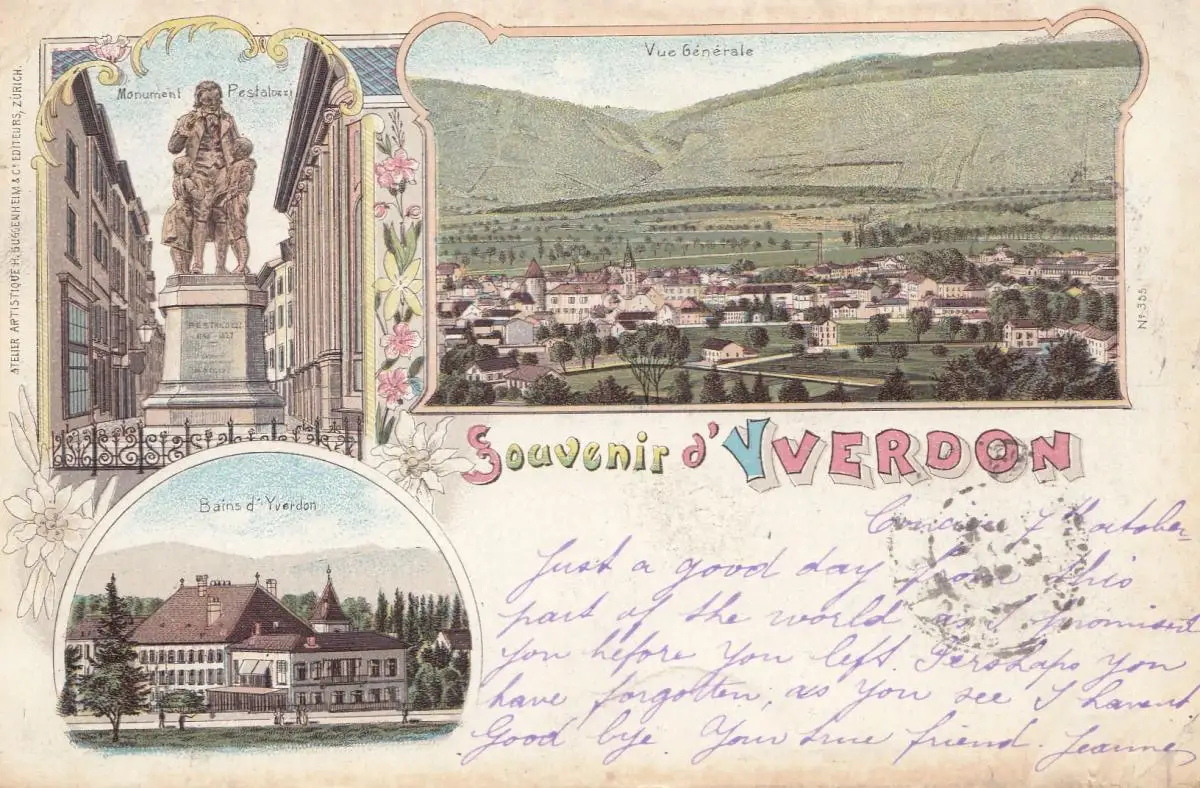 Vue Générale
Monument Pestalozzi
ATELIER ARTISTIQUE H. GUGGENHEIM & Cº EDITEURS, ZÜRICH.
PESTALOZZI
Nº 355
Souvenir d'YVERDON
Bains d'Yverdon
7 October
Just a good day from this
part of the world as I promised
you before you left. Pershaps you
have forgotten; as you see I havent
Good bye. Your true friend. Jeanne